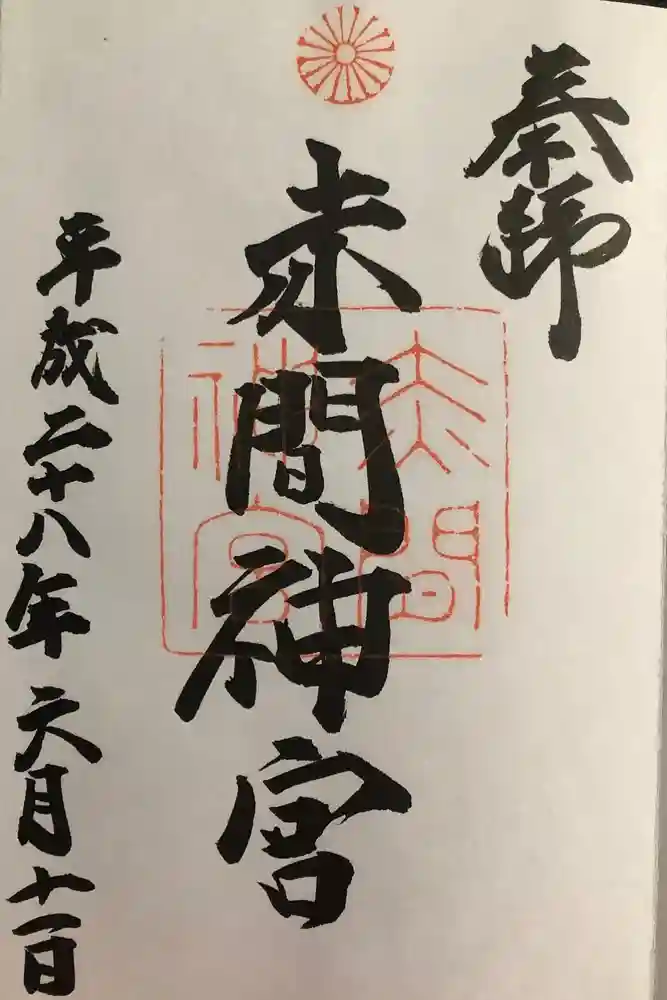 奉拝
赤間神宮
赤間
神宮
平成二十八年六月十一日